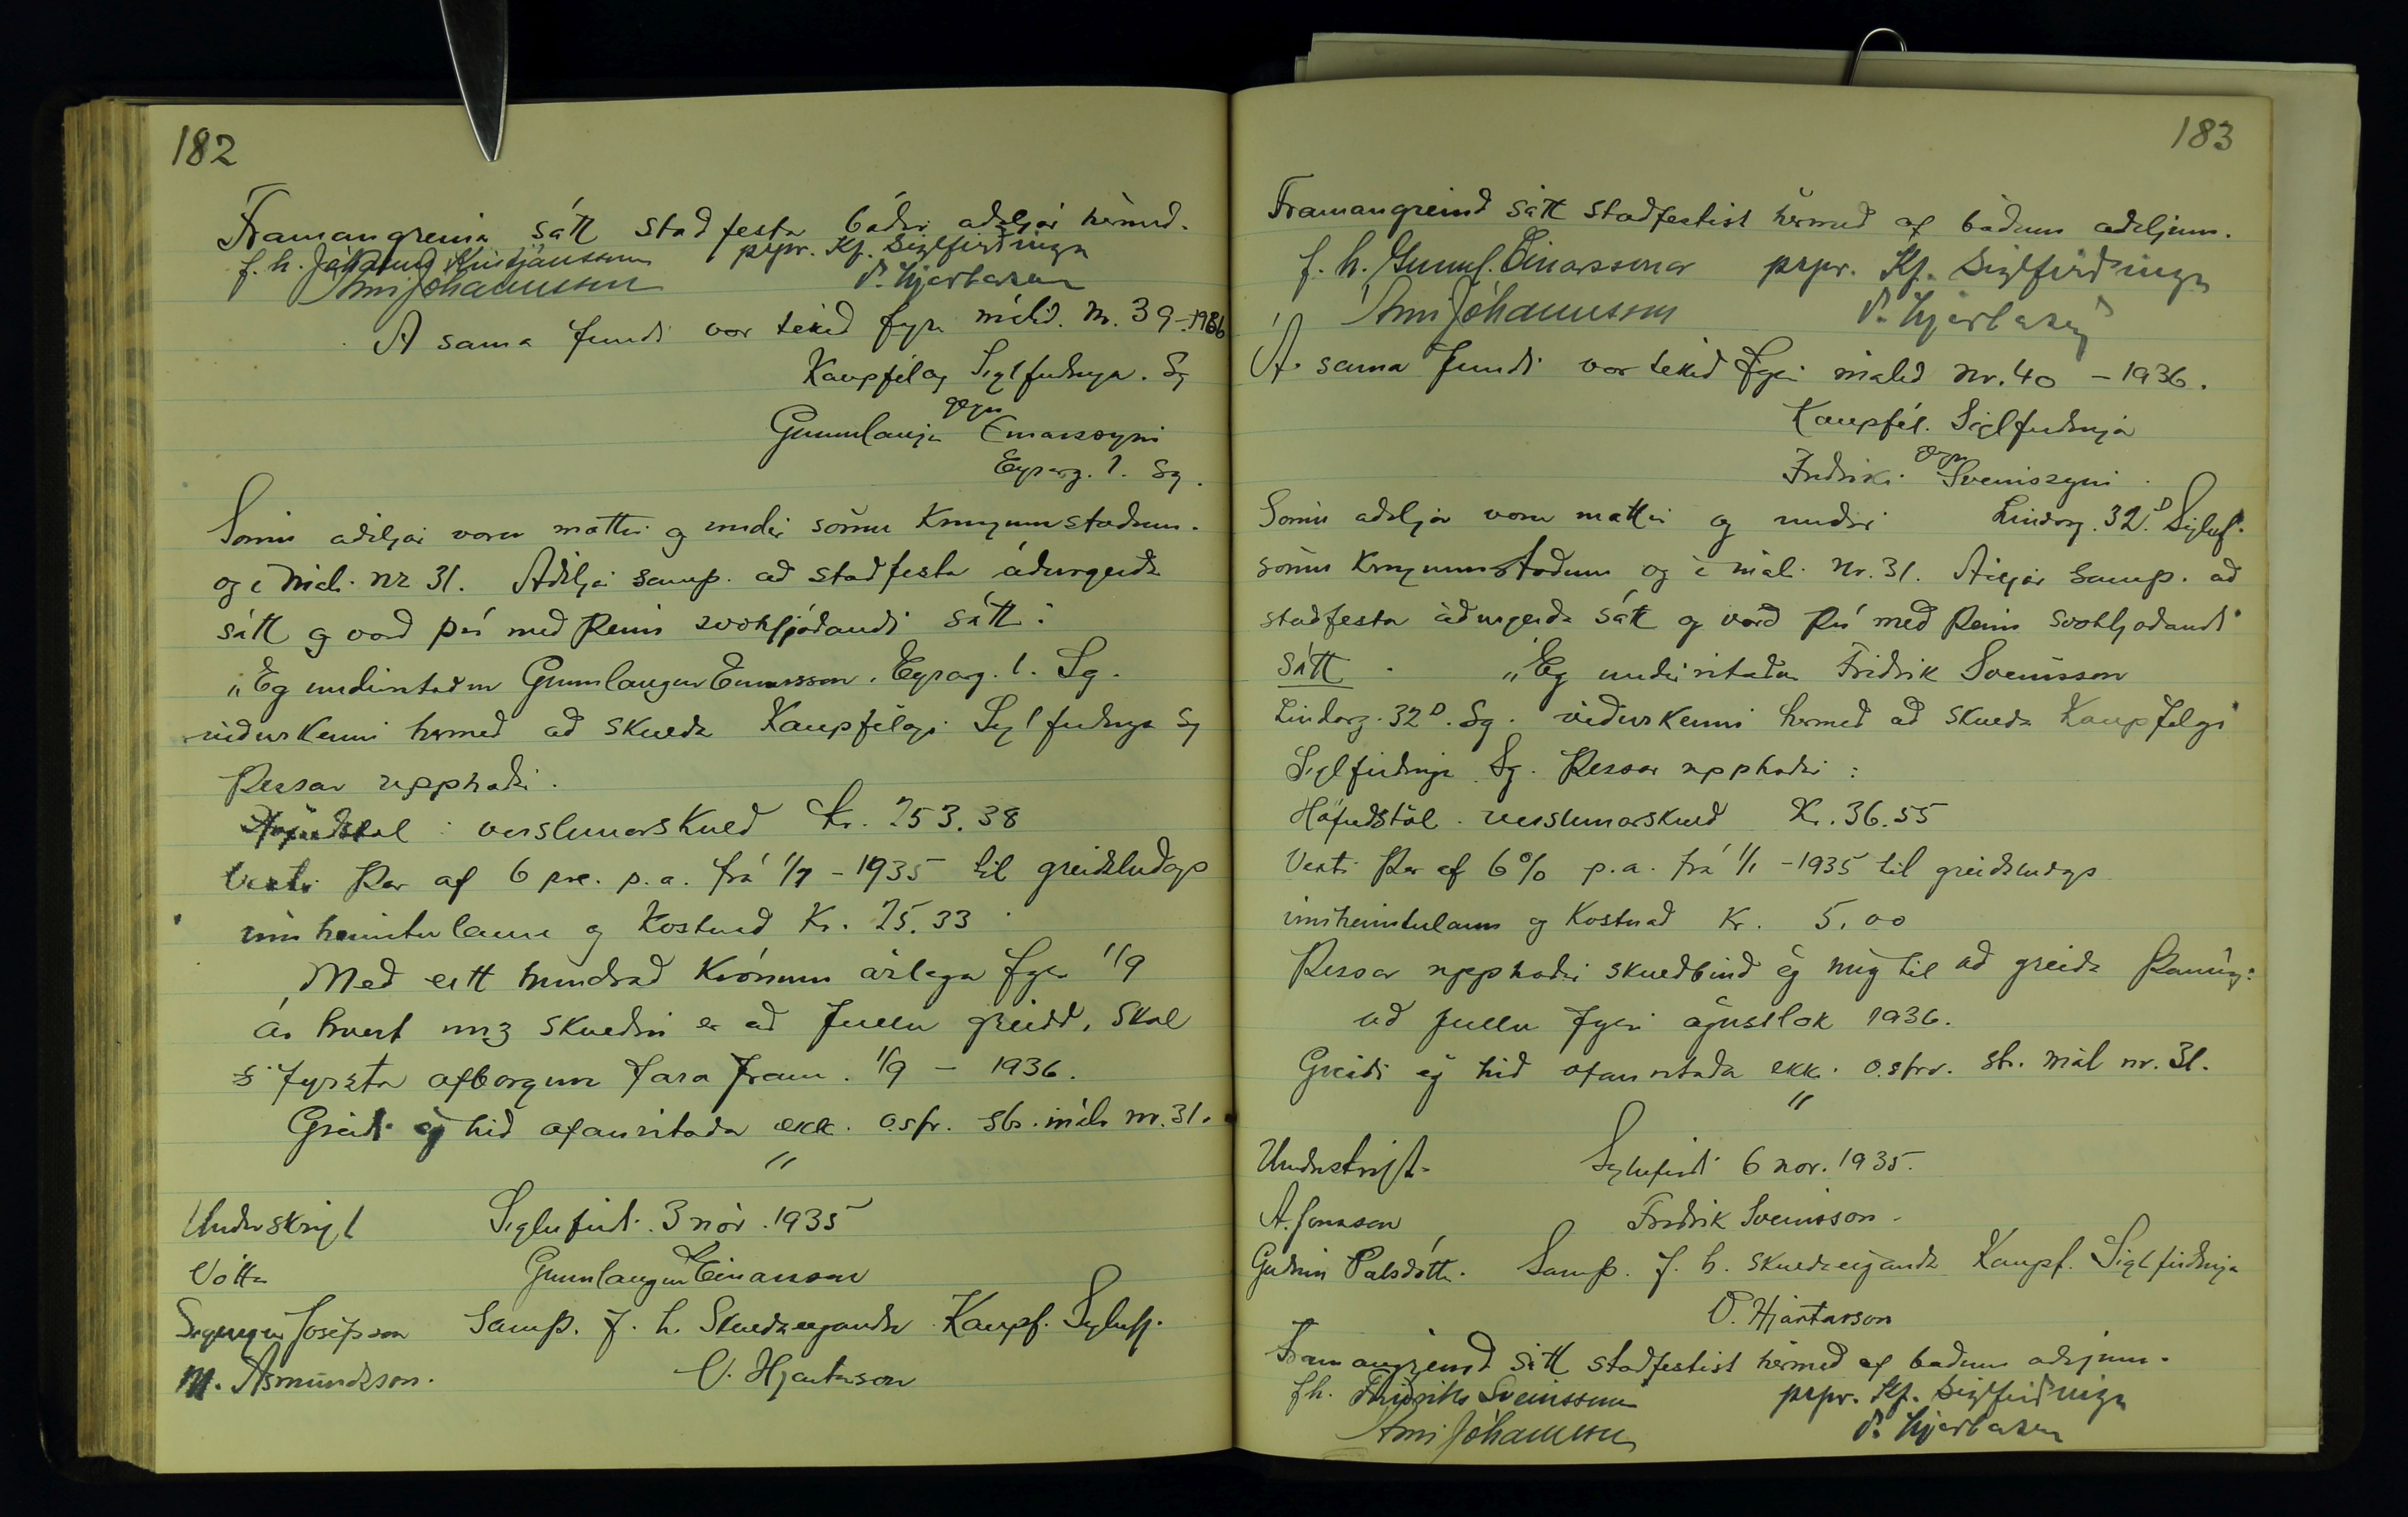 182
Framangreinda sátt staðfesta báðir aðiljar hérmeð.
f. h. Jóhanns Kristjánssonar prpr. Kf. Siglfirðinga
Árni Jóhannsson V. Hjartarson
Á sama fundi var tekið fyrir málið Nr. 39-1936
Kaupfélag Siglfirðinga. Sg
gegn
Gunnlaugi Einarssyni
Eyrarg. 1. Sg.
Sömu aðiljar voru mættir og undir sömu kringumstæðum.
og í Máli nr 31. Aðiljar samþ. að staðfesta áðurgerða
sátt og varð því með þeim svohljóðandi sátt:
„Eg undirritaður Gunnlaugur Einarsson. Eyrarg. 1. Sg.
viðurkenni hérmeð að skulda Kaupfélagi Siglfirðinga Sg
þessar upphæðir.
Höfuðstól: verslunarskuld Kr. 253.38
Vexti þar af 6 pre. p.a. frá 1/1 - 1935 til greiðsludags
innheimtulaun og kostnað Kr. 25.33
Með eitt hundrað krónum árlega fyrir 1/9
ár hvert unz skuldin er að fullu greidd, skal
fyrsta afborgun fara fram 1/9 - 1936.
Greiði eg hið ofanritaða ekki o.s.fr. sbr. máli nr. 31.
"
Underskrift Siglufirði 3 nóv. 1935
Votta Gunnlaugur Einarsson
Sigurgeir Jósepsson Samþ. f. h. Skuldareiganda Kaupf. Siglufj.
M. Ásmundsson. V. Hjartarson
183
Framangreind sátt staðfestist hérmeð af báðum aðiljum.
f. h. Gunnl. Einarssonar prpr. Kf. Siglfirðinga
Árni Jóhannsson V. Hjartarson
Á sama fundi var tekið fyrir málið Nr. 40 - 1936.
Kaupfél. Siglfirðinga
gegn
Friðriki Sveinssyni
Lindarg. 32.D Sigluf.
Sömu aðiljar voru mættir og undir
sömu kringumstæðum og í máli Nr. 31. Aðiljar samþ. að
staðfesta áðurgerða sátt og varð því með þeim svohljóðandi
sátt. „Eg undirritaður Friðrik Sveinsson
Lindarg. 32D. Sg. viðurkenni hérmeð að skulda Kaupfélagi
Siglfirðinga Sg. þessar upphæðir:
Höfuðstól. verslunarskuld Kr. 36.55
Vexti þar af 6% p.a. frá 1/1 - 1935 til greiðsludags
innheimtulaun og kostnað Kr. 5.00
Þessar upphæðir skuldbind ég mig til að greiða þannig:
að fullu fyrir ágústlok 1936.
Greiði eg hið ofanritaða ekki o.s.frv. sbr. mál nr. 31.
"
Underskrift Siglufirði 6 nov. 1935.
A. Jonasson Friðrik Sveinsson.
Guðrún Pálsdóttir. Samþ. f. h. skuldareiganda Kaupf. Siglfirðinga
V. Hjartarson
Framangreind sátt staðfestist hérmeð af báðum aðiljum.
fh. Friðriks Sveinssonar prpr. Kf. Siglfirðinga
Árni Jóhannsson V. Hjartarson